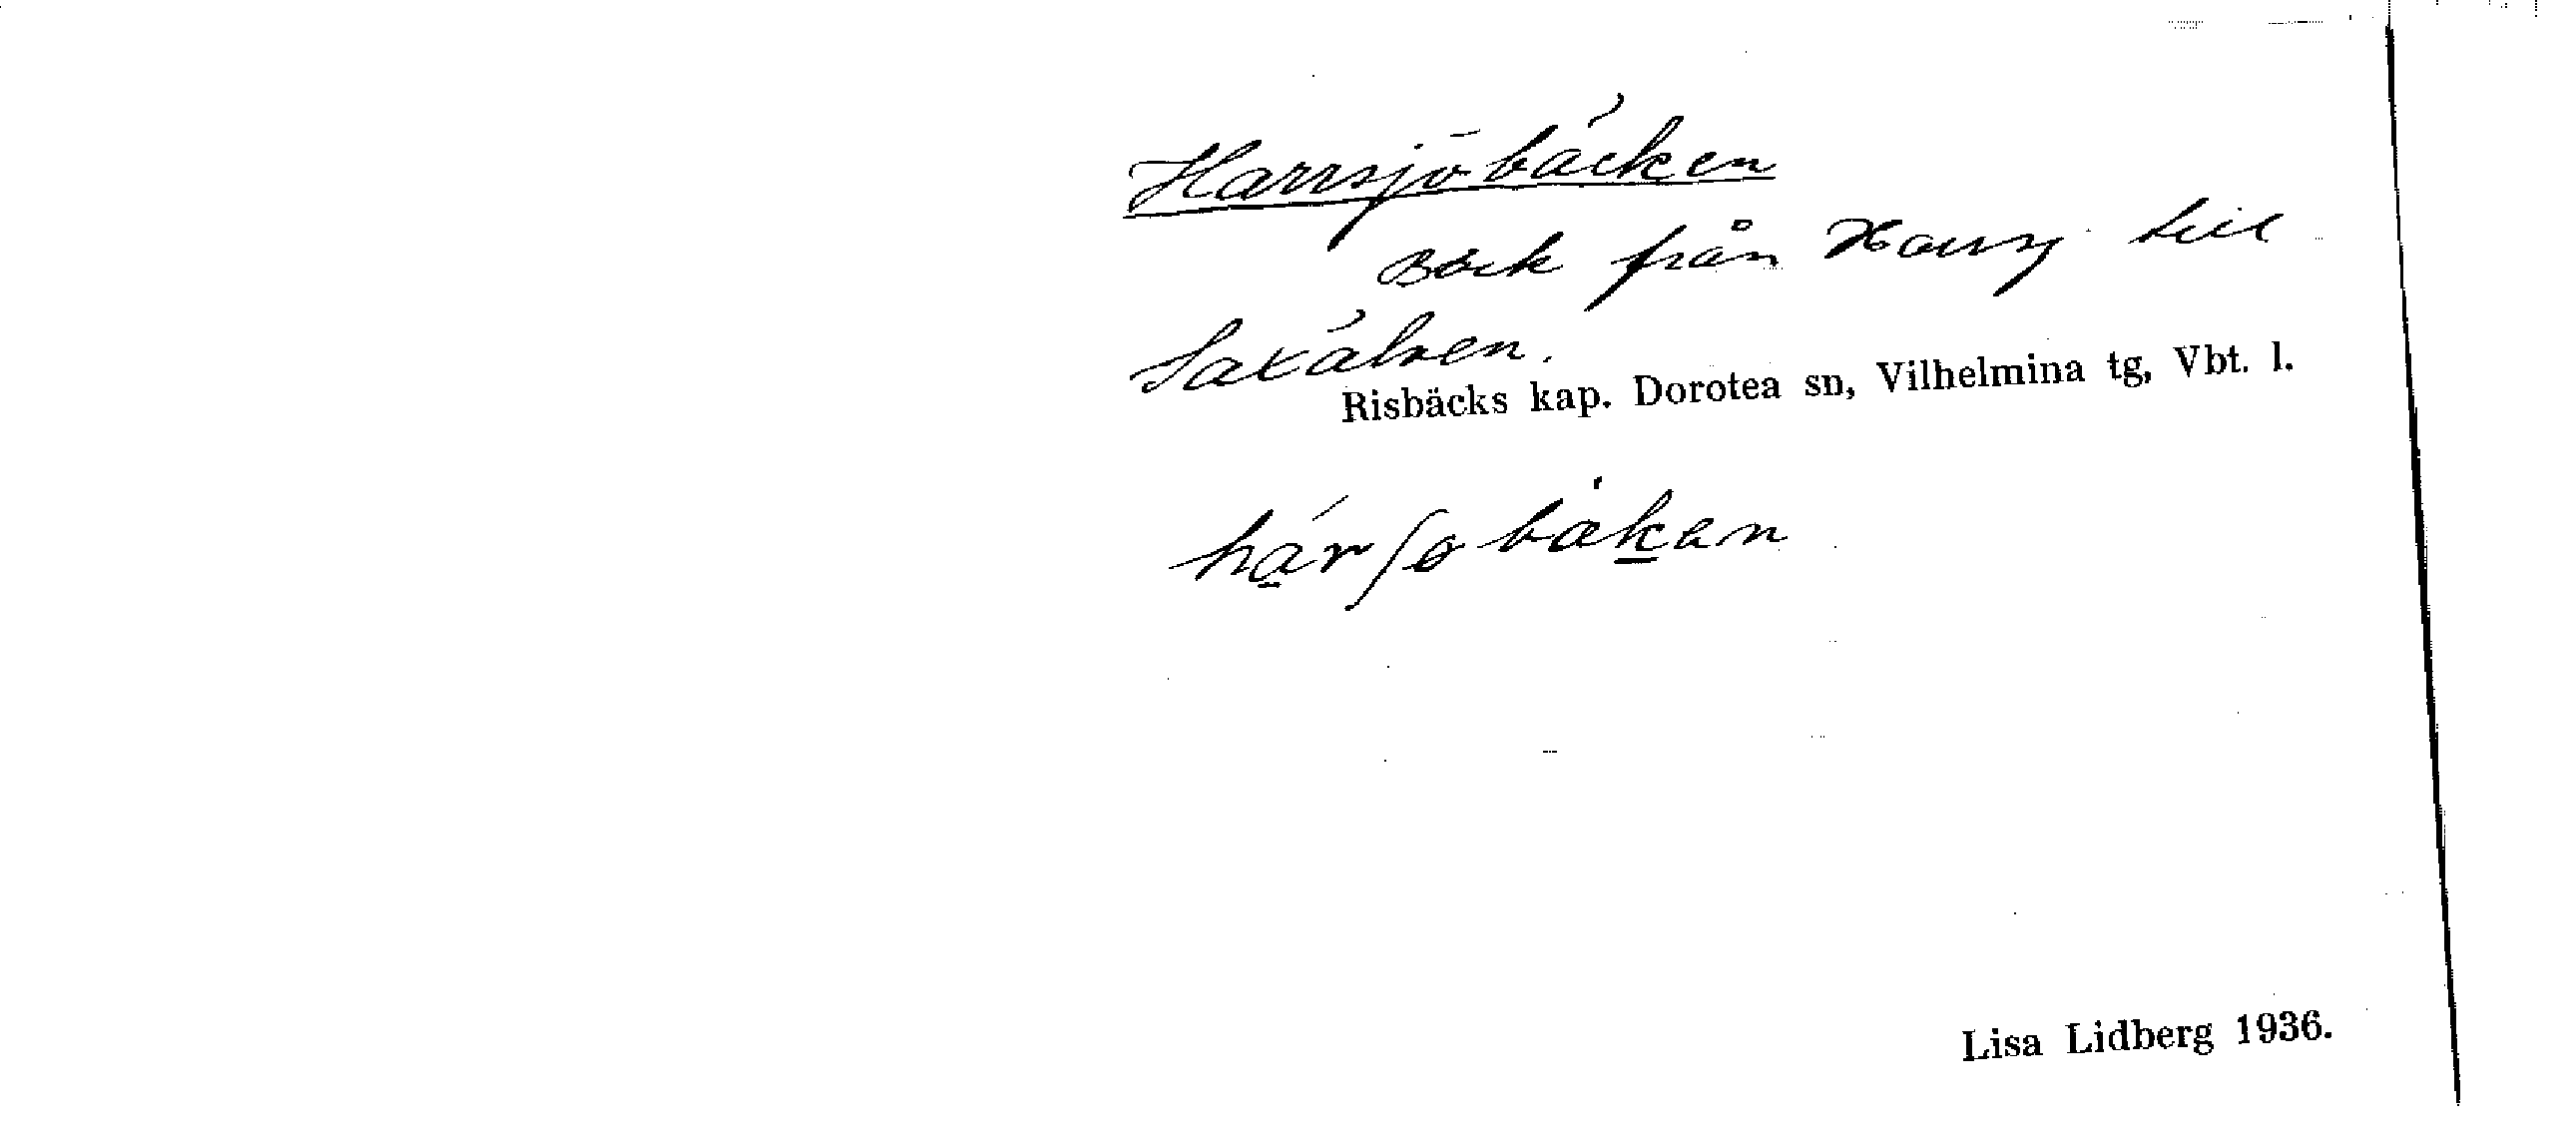 Harrsjöbäcken
Bäck från Harrsj till
Saxälven.
Risbäcks kap. Dorotea sn, Vilhelmina tg, Vbt. l.
Lisa Lidberg 1936.